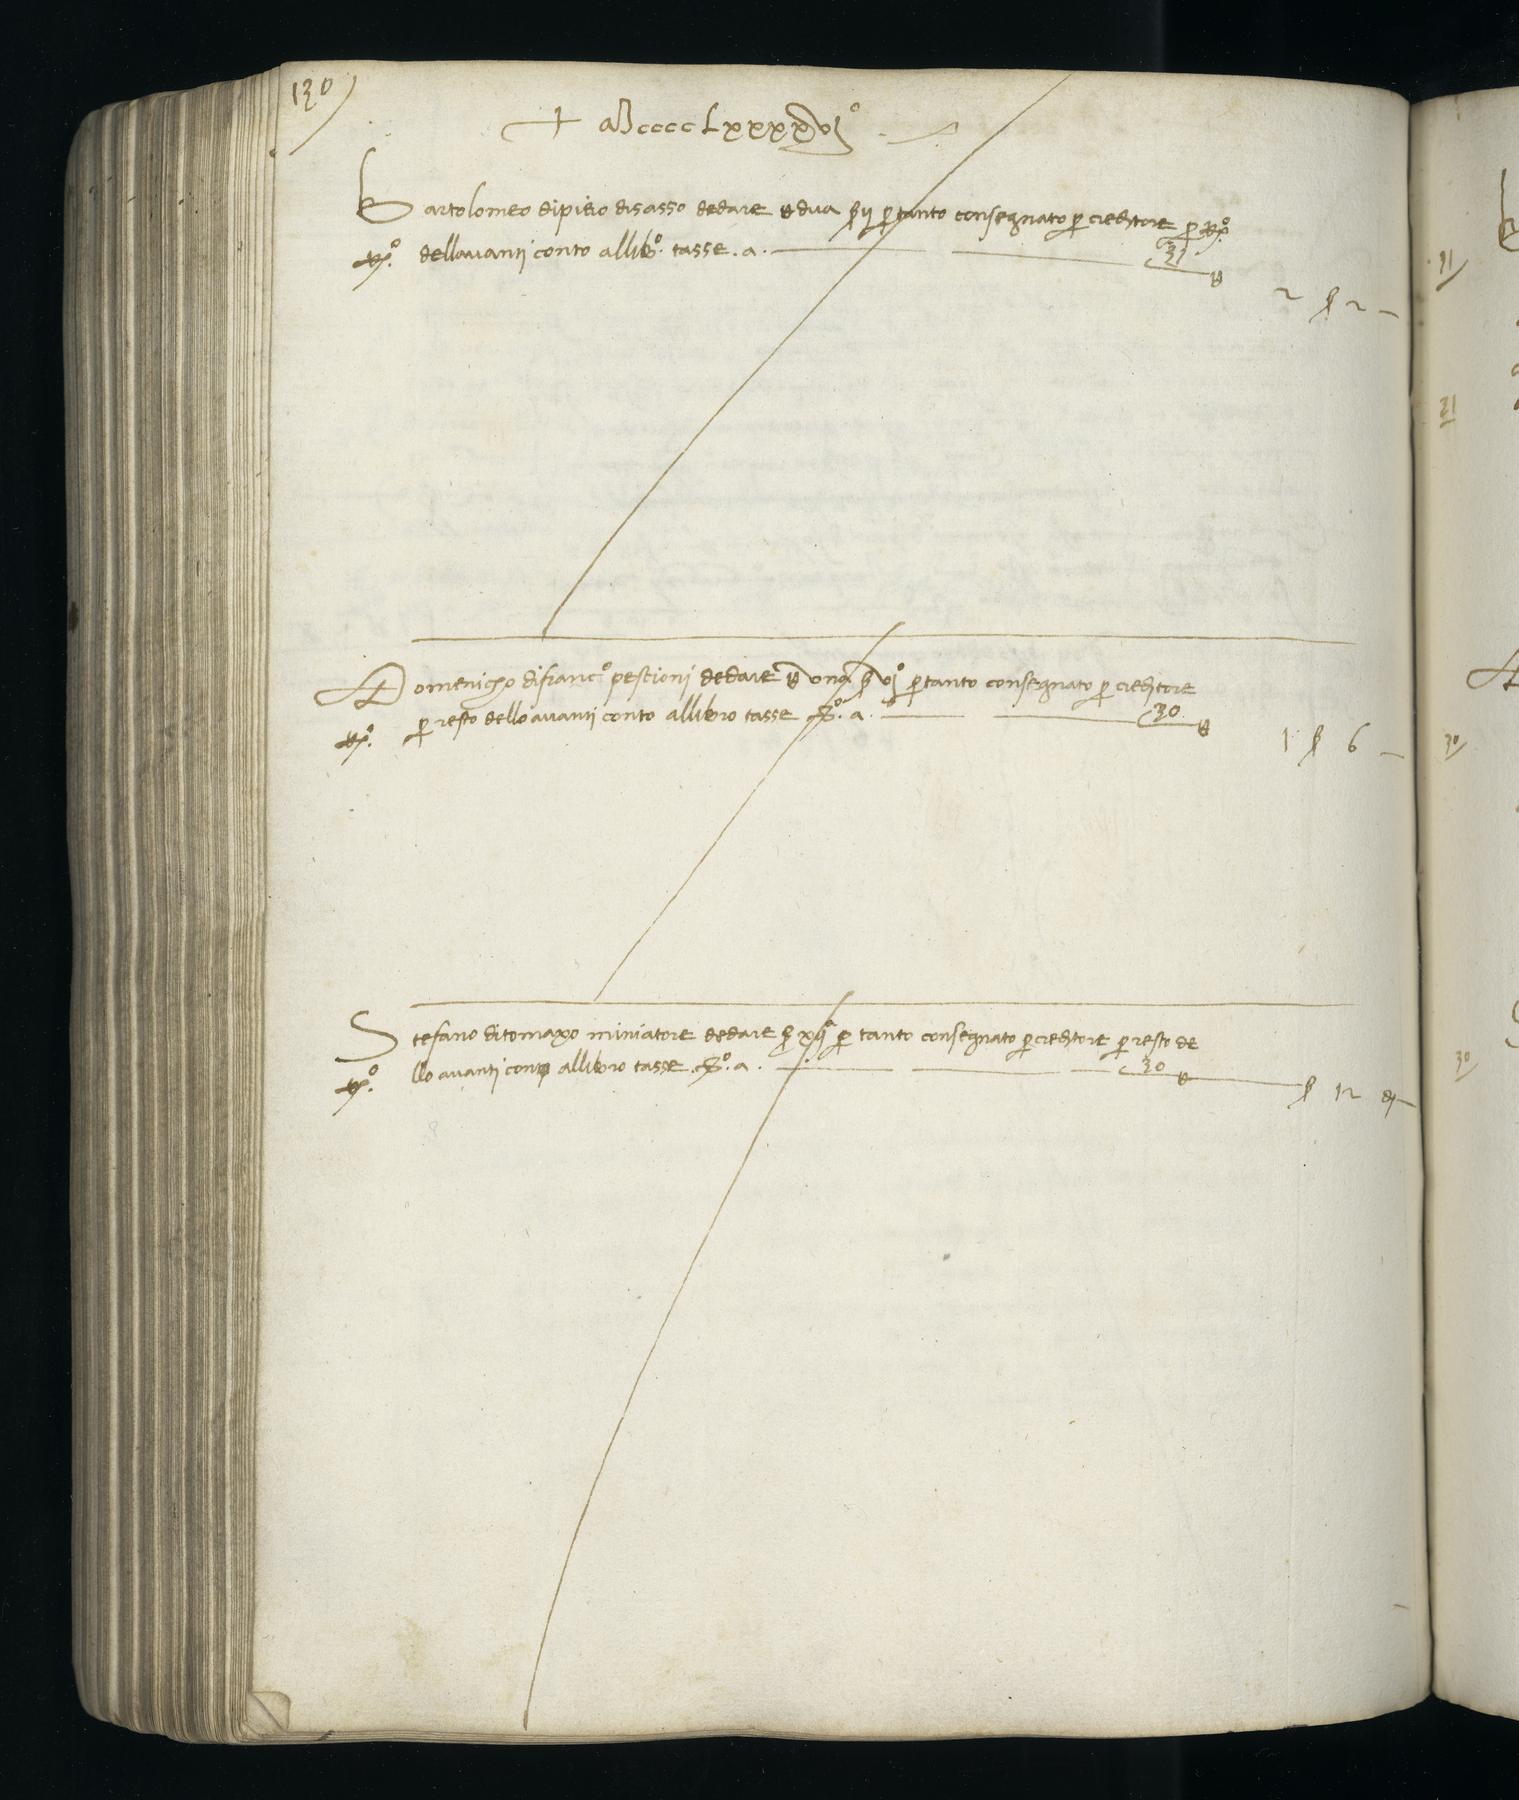 130
+ MccccLxxxxvjº
Bartolomeo dipiero disasso dedare dua ßij p tanto consegnato p creditore p Rº
Rº. dellavanti conto allibº. tasse. a. 31
2 ß 2 —
Domenicho difrancº pescionj dedare una ß vj p tanto consegnato p creditore
Rº. p resto dello avanti conto allibro tasse a. 30
1 ß 6 —
Stefano ditomaxo miniatore dedare ß xij p tanto consegnato p creditore p resto de
Rº. llo avanti conto allibro tasse a. 30
ß 12
31
31
30
30